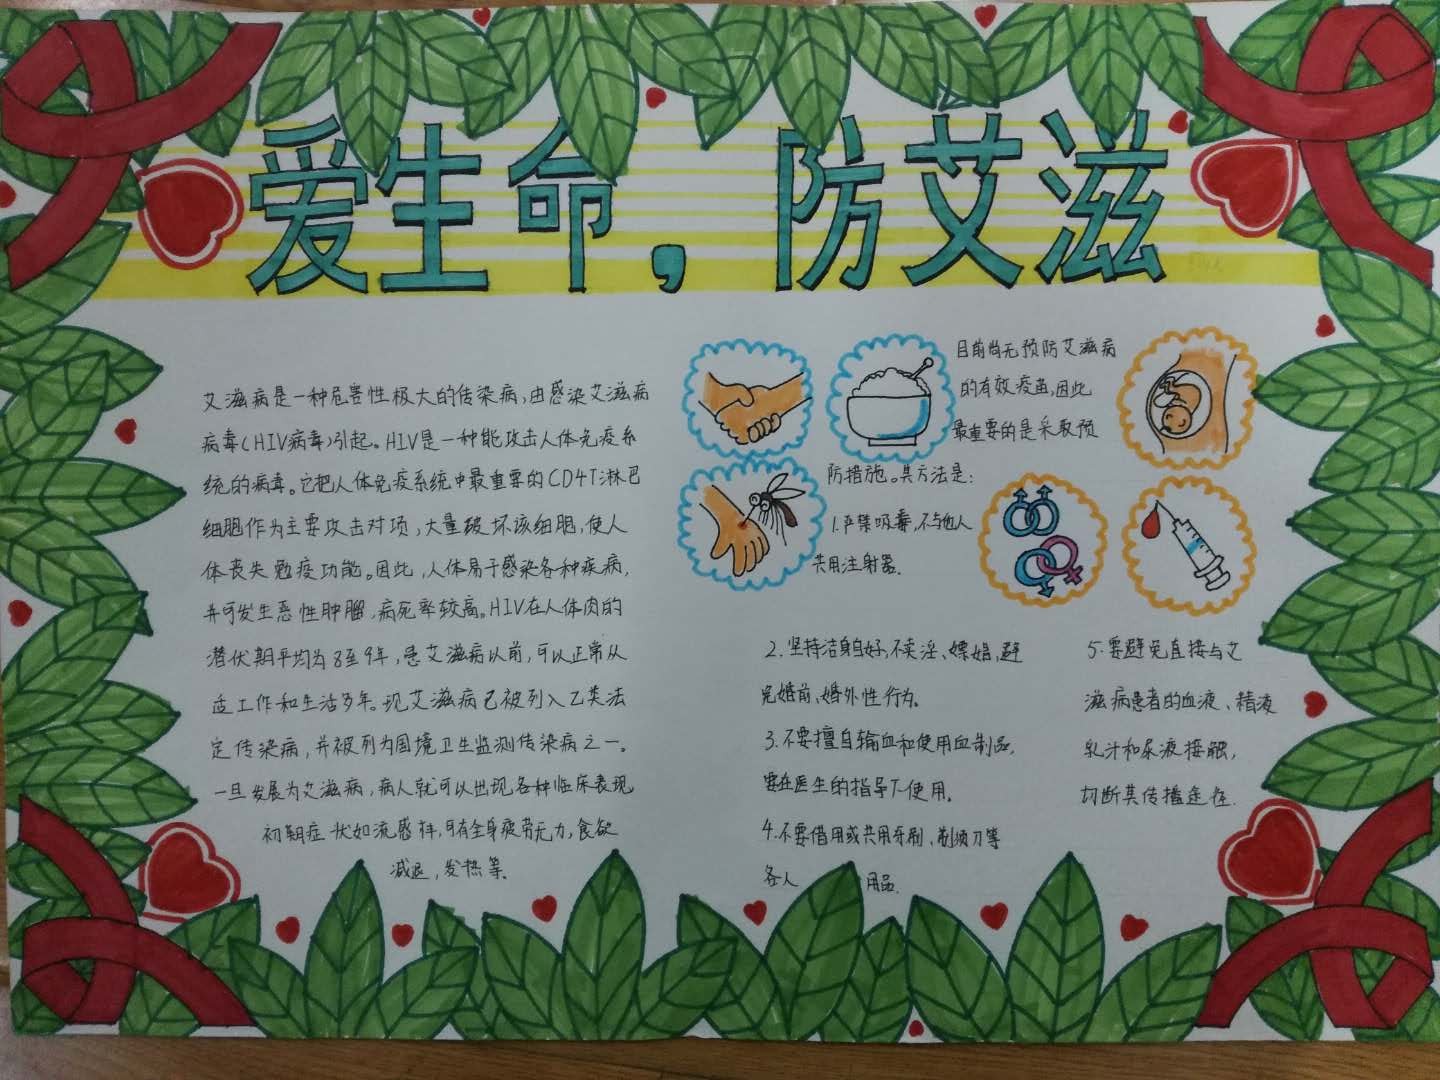 爱生命，防艾滋
艾滋病是一种危害性极大的传染病，由感染艾滋病
病毒(HIV病毒)引起。HIV是一种能攻击人体免疫系
统的病毒。它把人体免疫系统中最重要的CD4T淋巴
细胞作为主要攻击对项，大量破坏该细胞，使人
体丧失免疫功能。因此，人体易于感染各种疾病，
并可发生恶性肿瘤，病死率较高。HIV在人体肉的
潜伏期平均为8至9年，患艾滋病以前，可以正常从
适工作和生活多年。现艾滋病已被列入乙类法
定传染病，并被列为国境卫生监测传染病之一。
一旦发展为艾滋病，病人就可以出现各种临床表现
初期症状如流感样，可有全身疲劳无力，食欲
减退，发热等。
目前尚无预防艾滋病
的有效疫苗，因此
最重要的是采取预
防措施。其方法是：
1.严禁吸毒，不与他人
共用注射器。
2.坚持洁身自好，不卖淫、嫖娼，避
免婚前、婚外性行为。
3.不要擅自输血和使用血制品，
要在医生的指导下使用。
4.不要借用或共用牙刷、剃须刀等
各人 用品.
5.要避免直接与艾
滋病患者的血液、精液
乳汁和尿液接触，
切断其传播途径.